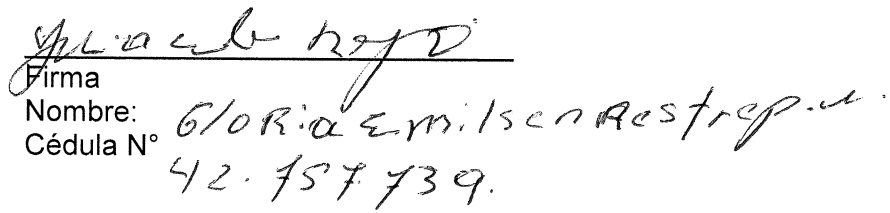 Firma
Nombre: Gloria Emilsen Restrepo.
Cédula N° 42.757.739.